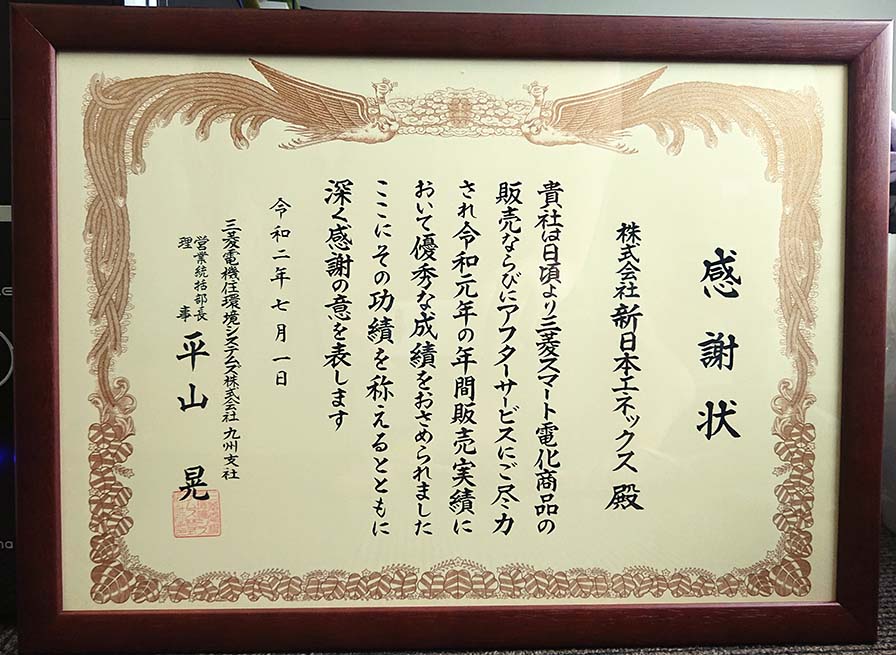 感謝状
株式会社 新日本エネックス 殿
貴社は日頃より三菱スマート電化商品の
販売ならびにアフターサービスにご尽力
され令和元年の年間販売実績に
おいて優秀な成績をおさめられました
ここにその功績を称えるとともに
深く感謝の意を表します
令和二年七月一日
三菱電機住環境システムズ株式会社 九州支社
営業統括部長
理事 平山 晃